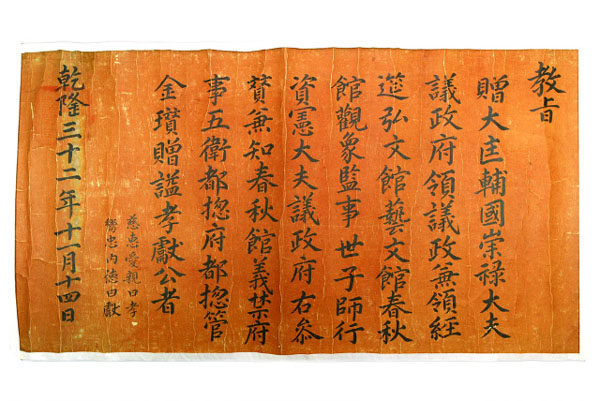 教旨
贈大匡輔國崇祿大夫
議政府領議政兼領經
筵弘文館藝文館春秋
館觀象監事 世子師行
資憲大夫議政府右參
贊兼知春秋館義禁府
事五衛都摠府都摠管
金璸贈諡孝獻公者
慈惠愛親曰孝
嚮忠內德曰獻
乾隆三十二年十一月十四日